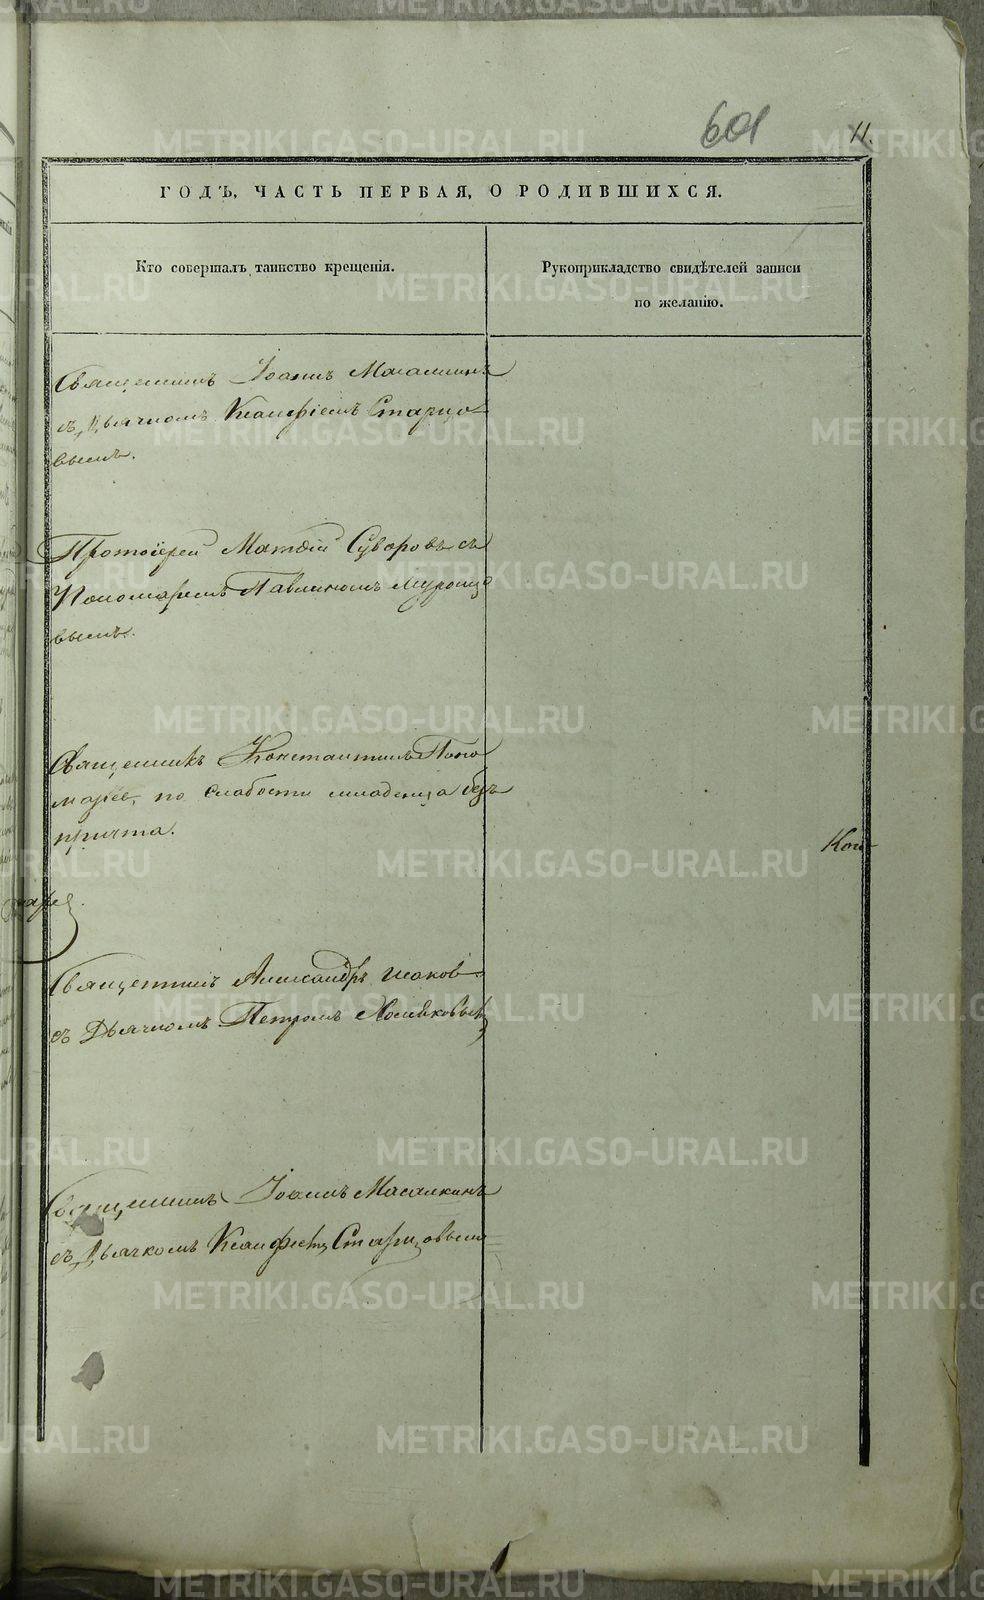 601
11.
ГОДЪ, ЧАСТЬ ПЕРВАЯ, О РОДИВШИХСЯ.
Кто совершалъ таинство крещенія.
Рукоприкладство свидѣтелей записи
по желанію.
Священникъ Іоаннъ Масалкинъ
съ Дьячкомъ Ксанфіемъ Старцо-
вымъ.
Протоіерей Матѳій Суворовъ съ
Пономаремъ Павлиномъ
вымъ.
Священникъ Константинъ Поно
маревъ, по слабости младенца безъ
причта.
Кон-
Священникъ Александръ
съ Дьячкомъ Петромъ
Священникъ Іоаннъ Масалкинъ
съ Дьячкомъ Старцовымъ
METRIKI.GASO-URAL.RU